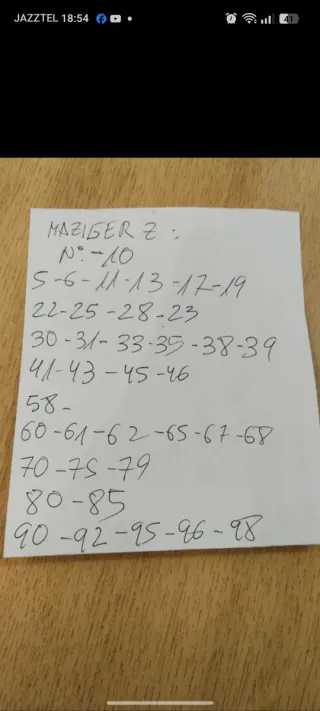 JAZZTEL 18:54
41
MAZIGER Z :
Nº -10
5-6-11-13-17-19
22-25-28-23
30-31-33-35-38-39
41-43-45-46
58-
60-61-62-65-67-68
70-75-79
80-85
90-92-95-96-98